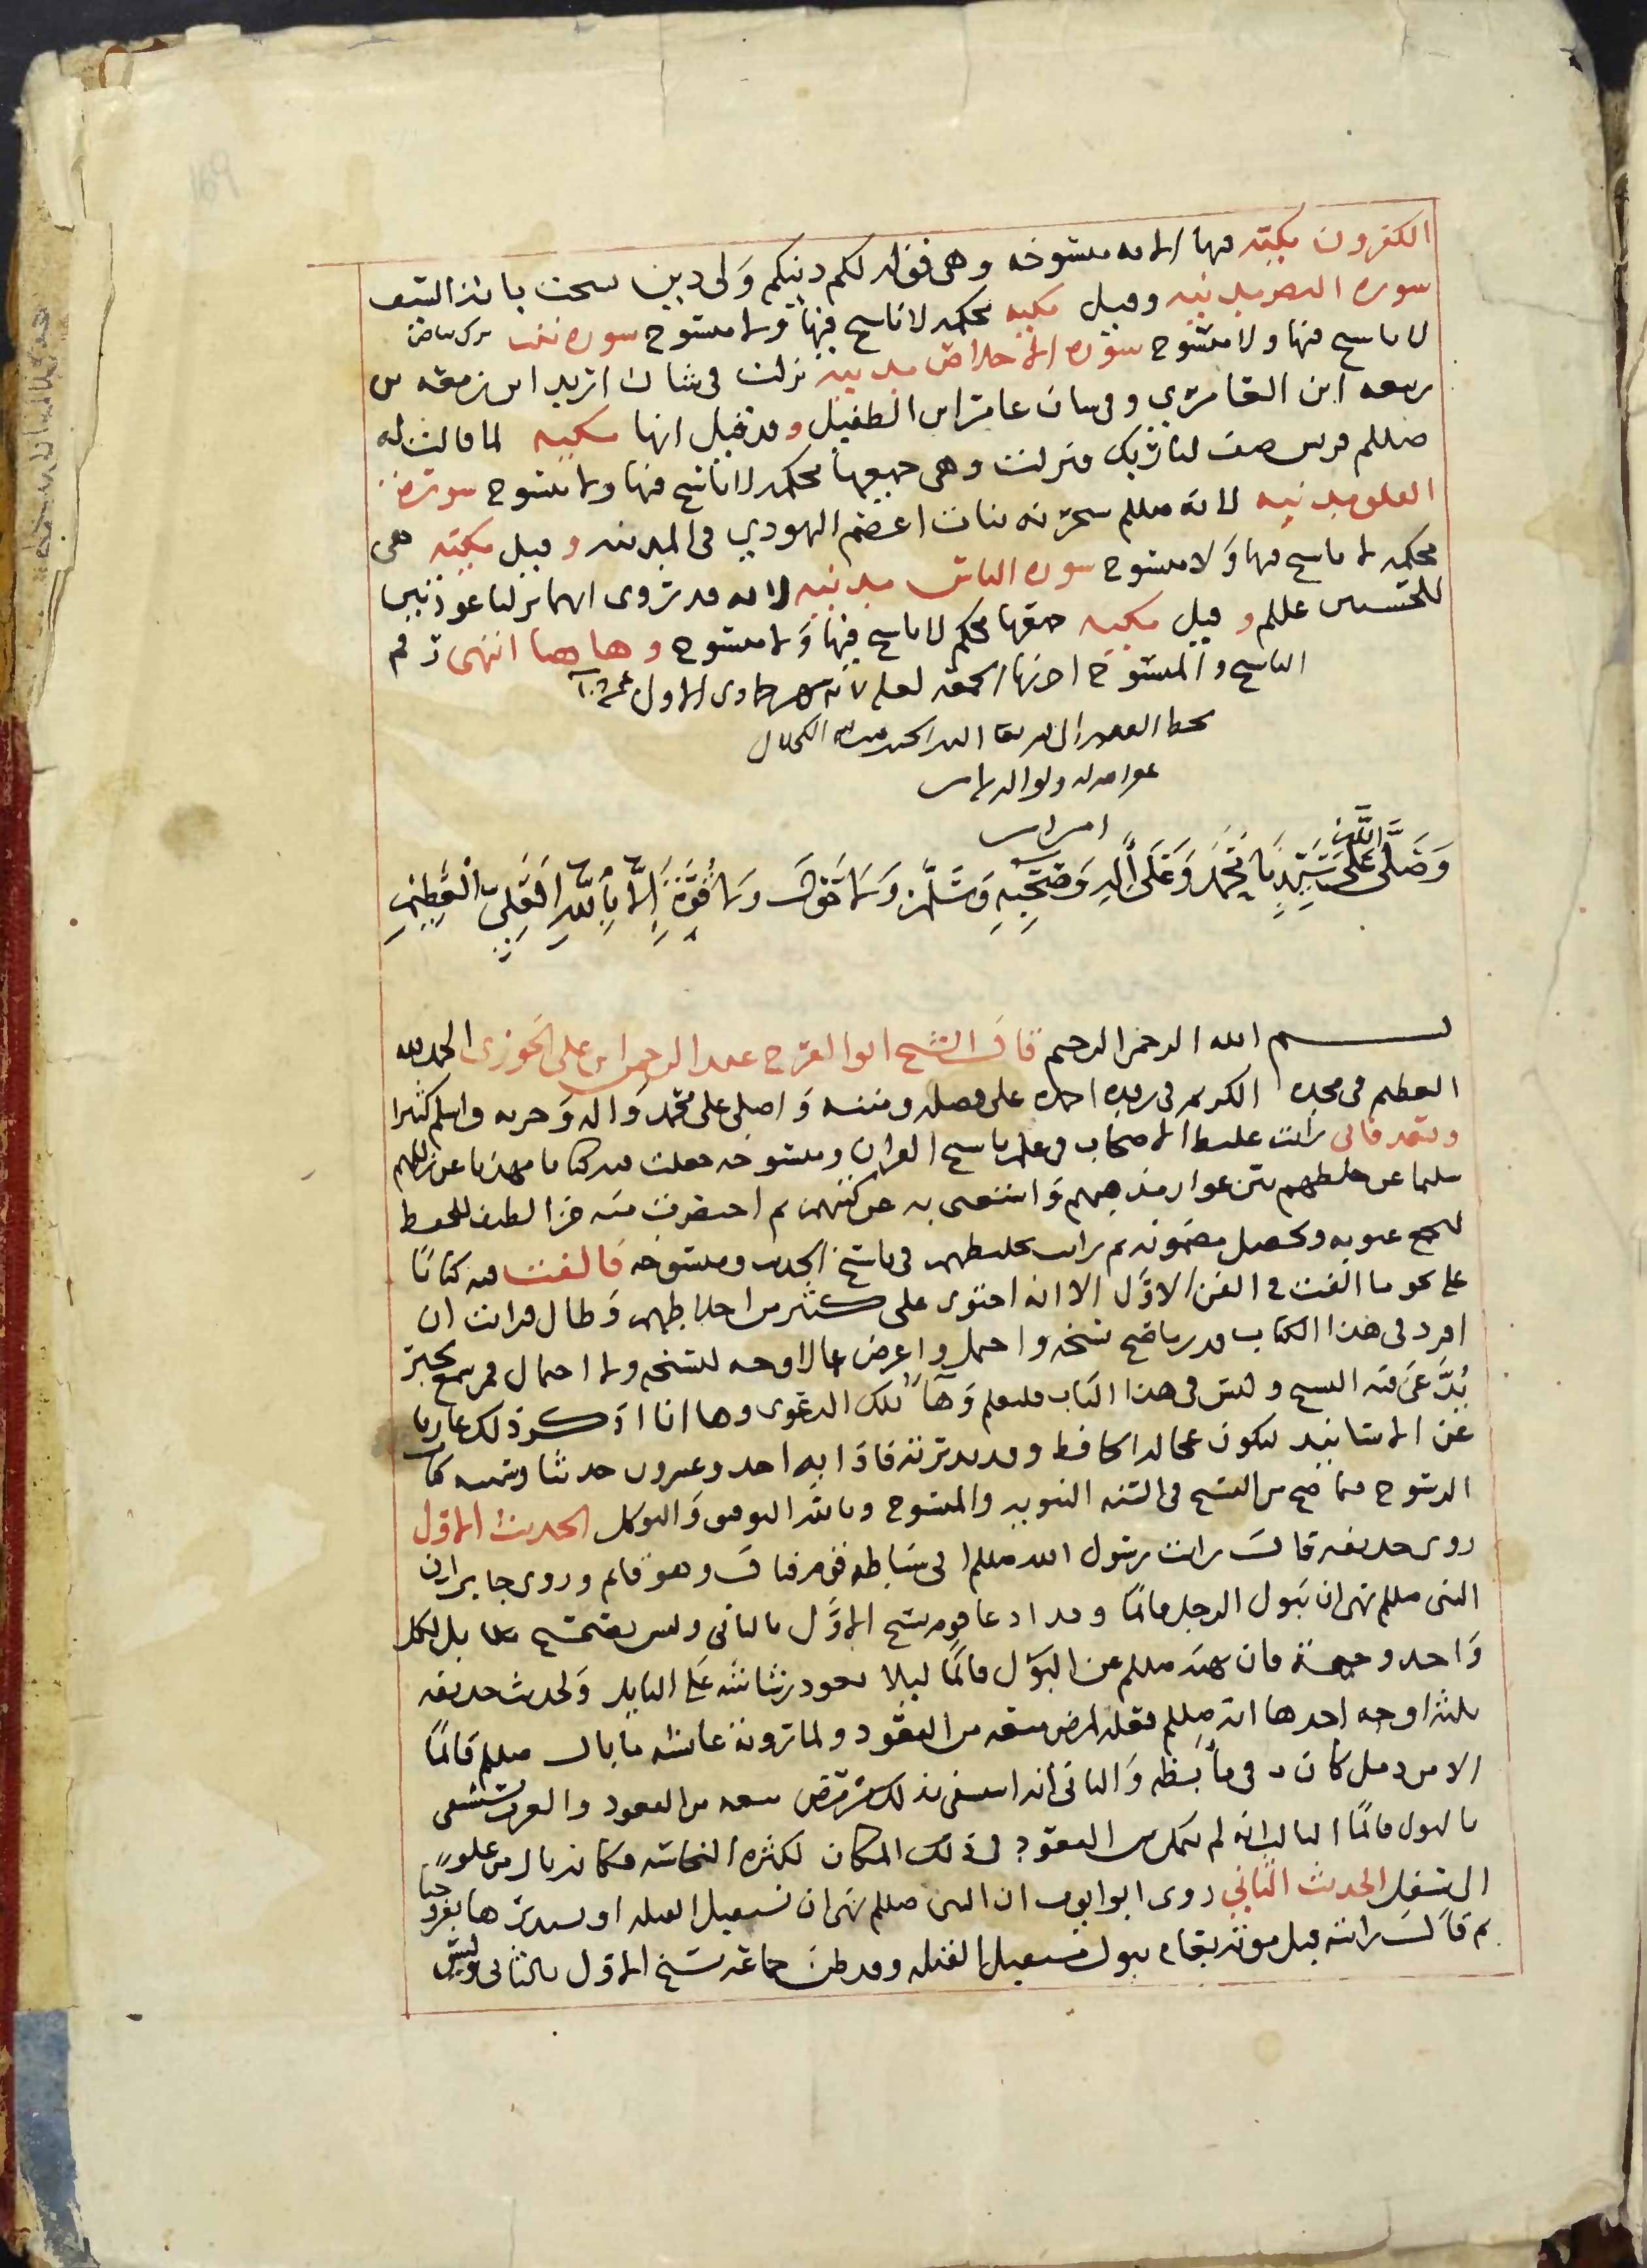 الكفرون مكيه فيها آيه منسوخه وهى قوله لكم دينكم ولى دين نسخت بآيه السيف
سوره النصر مدنيه وقيل مكيه محكمه لا ناسخ فيها ولا منسوخ سوره تبت
لا ناسخ فيها ولا منسوخ سوره الاخلاص مدنيه نزلت فى شان اربد ابن
ربيعه ابن العامري وفى شان عامر ابن الطفيل وقد قيل انها مكيه لما قالت له
صللم قريش صف لنا ربك فنزلت وهى جميعها محكمه لا ناسخ فيها ولا منسوخ سوره
الفلق مدنيه لانه صللم سحرنه بنات اعصم اليهودي فى المدينه وقيل مكيه هى
محكمه لا ناسخ فيها ولا منسوخ سوره الناس مدنيه لانه قد روى انهما نزلتا
عللم وقيل مكيه محكم لا ناسخ فيها ولا منسوخ وهاهنا انتهى رقم
الناسخ والمنسوخ جمادى الاول
بخط الفقير الى الله
ولوالديه
امين
وصلى الله على سيدنا محمد وعلى آله وصحبه وسلم ولا حول ولا قوة الا بالله العلى العظيم
بسم الله الرحمن الرحيم قال الشيخ ابو الفرج عبد الرحمن ابن على الجوزى الحمد لله
العظيم فى مجده الكريم فى رفده احمده على فضله ومننه واصلى على محمد واله وحزبه واسلم كثيرا
وبعد فانى رايت تخليط الاصحاب فى علم ناسخ القران ومنسوخه فعملت فيه كتابا مهذبا عن زللهم
سليما عن خلطهم يبين عوار مذهبهم واستغنى به عن كتبهم ثم اختصرت منه جزا لطيف للحفظ
عيوبه وتحصيل مضمونه ثم رايت تخليطهم فى ناسخ الحديث ومنسوخه فالفت فيه كتابا
على نحو ما الفت فى الفن الاول الا انه احتوى على كثير من اخلاطهم وطال فرايت ان
افرد فى هذا الكتاب قدر ما صح نسخه واحتمل واعرض عما لا وجه لنسخه ولا احتمال فمن سمع بخبر
يدعى فيه النسخ وليس فى هذا الكتاب فليعلم وهاء تلك الدعوى وها انا اذكر ذلك عاريا
عن الاسانيد ليكون عجالة الحافظ وقد تدبرته فاذا به احد وعشرون حديثا وسميته كتاب
الرسوخ فيما صح من النسخ فى السنه النبويه والمنسوخ وبالله التوفيق والتوكل الحديث الاول
روى حذيفه قال رايت رسول الله صللم اتى سباطه قوم فبال وهو قايم وروى جابر ان
النبى صللم نهى ان يبول الرجل قائما وقد ادعا قوم نسخ الاول بالثانى وليس بصحيح بل لكل
واحد وجهه فان نهيه صللم عن البول قائما ليلا يعود رشاشه على البايل ولحديث حذيفه
ثلثه اوجه احدها انه صللم فعله لمرض منعه من القعود ولما روته عائشه ما بال صللم قائما
الا من دمل كان فى مابضه والثانى انه استشفى بذلك من مرض منعه من القعود والعرب تستشفى
بالبول قائما الثالث انه لم يتمكن من القعود فى ذلك المكان لكثرة النجاسه فكانه بال من علو
الى سفل الحديث الثاني روى ابو ايوب ان النبى صللم نهى ان نستقبل القبله او نستدبرها بفروجنا
ثم قال رايته قبل موته بعام يبول مستقبل القبله وقد ظن جماعة نسخ الاول بالثانى وليس